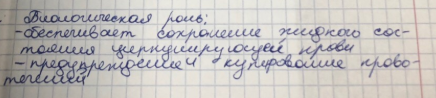 Биологическая роль:
-обеспечивает сохранение жидкого сос-
тояния циркулирующей крови
-предупреждение и купирование крово-
течений